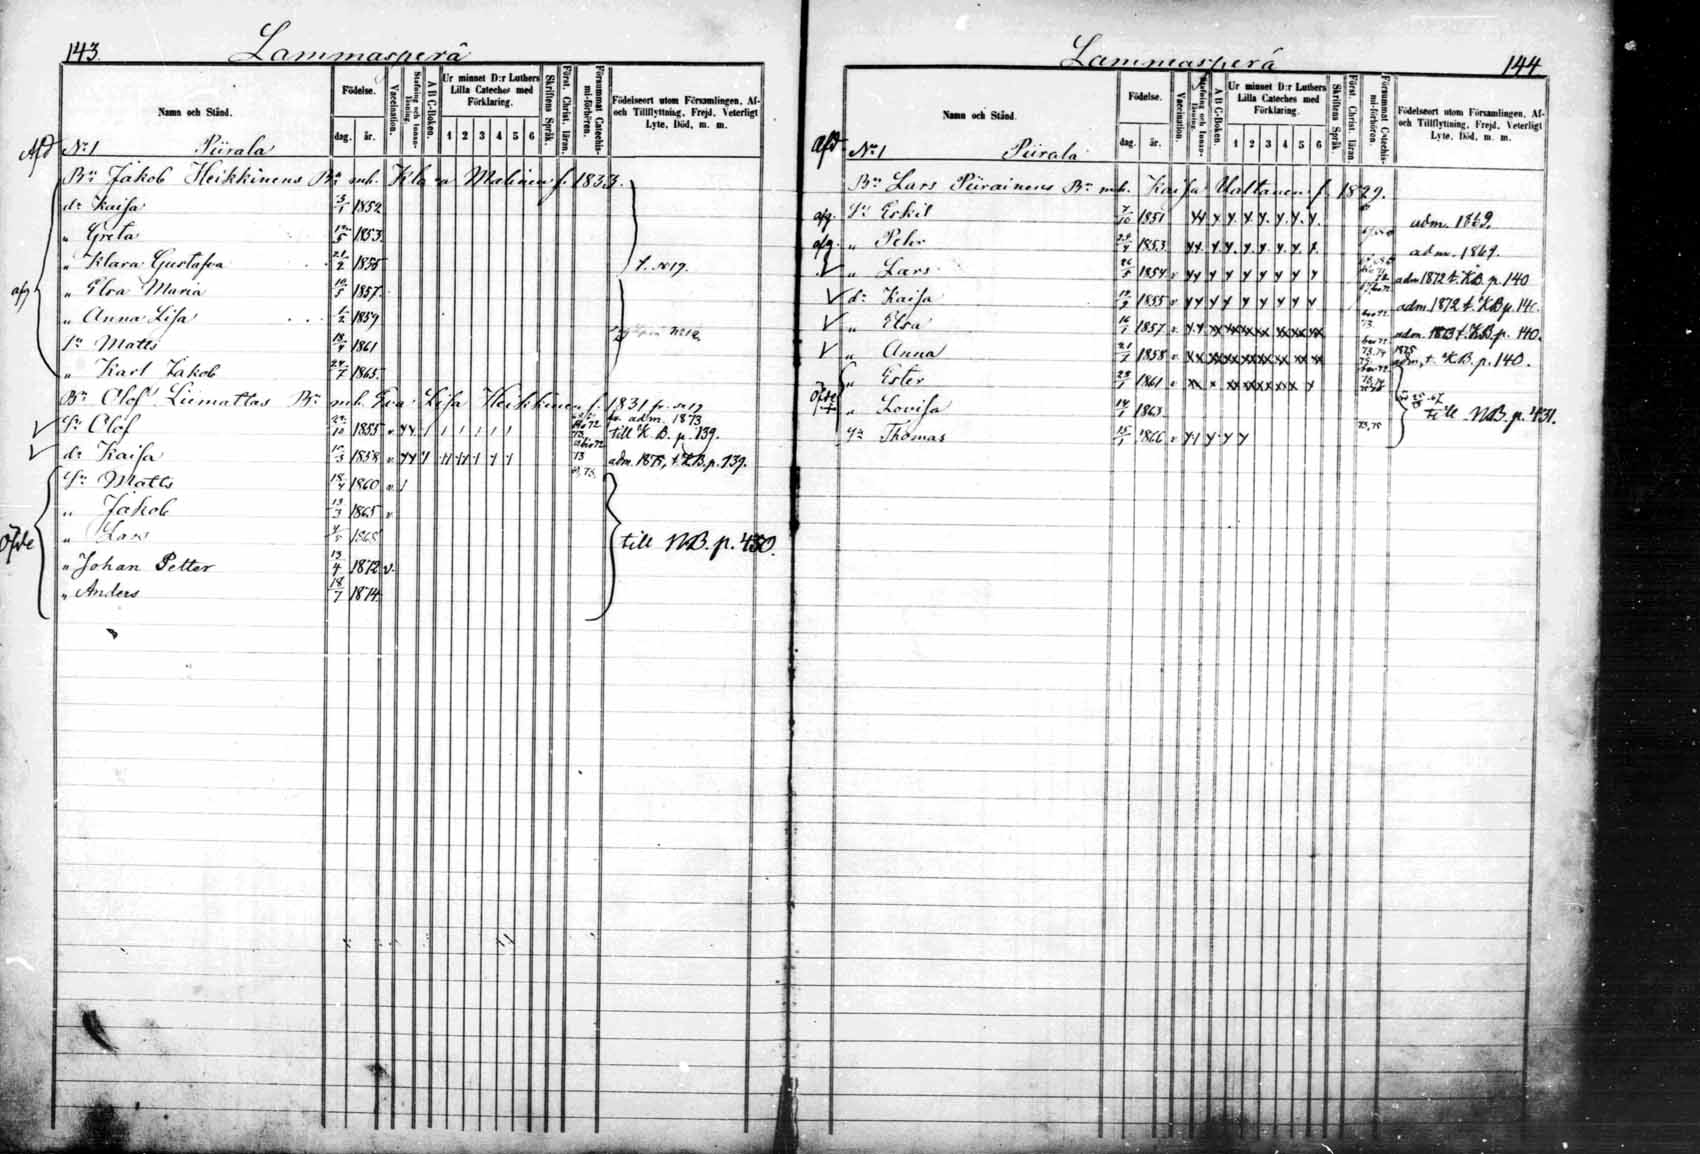 143. Lammasperä
Namn och Stånd.
Födelse.
dag. år.
Vaccination.
Stafning och Innan-läsning.
A B C-Boken.
Ur minnet D:r Luthers Lilla Cateches med Förklaring.
1 2 3 4 5 6
Skriftens Språk.
Först. Christ. läran.
Försummat Catechis-mi-förhören.
Födelseort utom Församlingen, Af- och Tillflyttning, Frejd, Veterligt Lyte, Död, m. m.
Afd No 1 Piirala
Bn Jakob Heikkinens Bn mh. Klara Malinen f. 1833.
dr Kaisa 3/1 1852
" Greta 1853
" Klara Gustafva 21/2 1855
afg " Elsa Maria 10/5 1857
" Anna Lisa 1859
Sn Matts 1861
" Karl Jakob 24/7 1863
Bn Olof Liimattas Bn mh. Eva Lisa Heikkinen f. 1831
Sn Olof 22/10 1855 v adm. 1873 till K. B. p. 139.
dr Kaisa 10/3 1858 v adm. 1875, t. K.B. p. 139.
Sn Matts 18/4 1860 v
" Jakob 13/3 1865 v
" Lars 1868 till NB. p. 430.
" Johan Petter 13/4 1872 v.
" Anders 18/7 1874
Lammasperä 144
Namn och Stånd.
Födelse.
dag. år.
Vaccination.
Stafning och Innan-läsning.
A B C-Boken.
Ur minnet D:r Luthers Lilla Cateches med Förklaring.
1 2 3 4 5 6
Skriftens Språk.
Först. Christ. läran.
Försummat Catechis-mi-förhören.
Födelseort utom Församlingen, Af- och Tillflyttning, Frejd, Veterligt Lyte, Död, m. m.
Afd No 1 Piirala
Bn Lars Piirainens Bn mh. Kaisa Ualtanen f. 1829.
afg. Sn Eskil 7/10 1851 adm. 1869.
afg. " Pehr 1853 adm. 1869.
" Lars 26/5 1854 v adm 1872 t. K.B. p. 140
dr Kaisa 1855 v adm. 1872 t. K B p. 140.
" Elsa 16/1 1857 v. adm. 1873 t. K.B. p. 140.
" Anna 21/7 1858 v 1875 adm, t. K B. p. 140.
" Ester 23/1 1861 v
" Lovisa 14/1 1863 till NB. p. 431.
Sn Thomas 15/1 1866 v